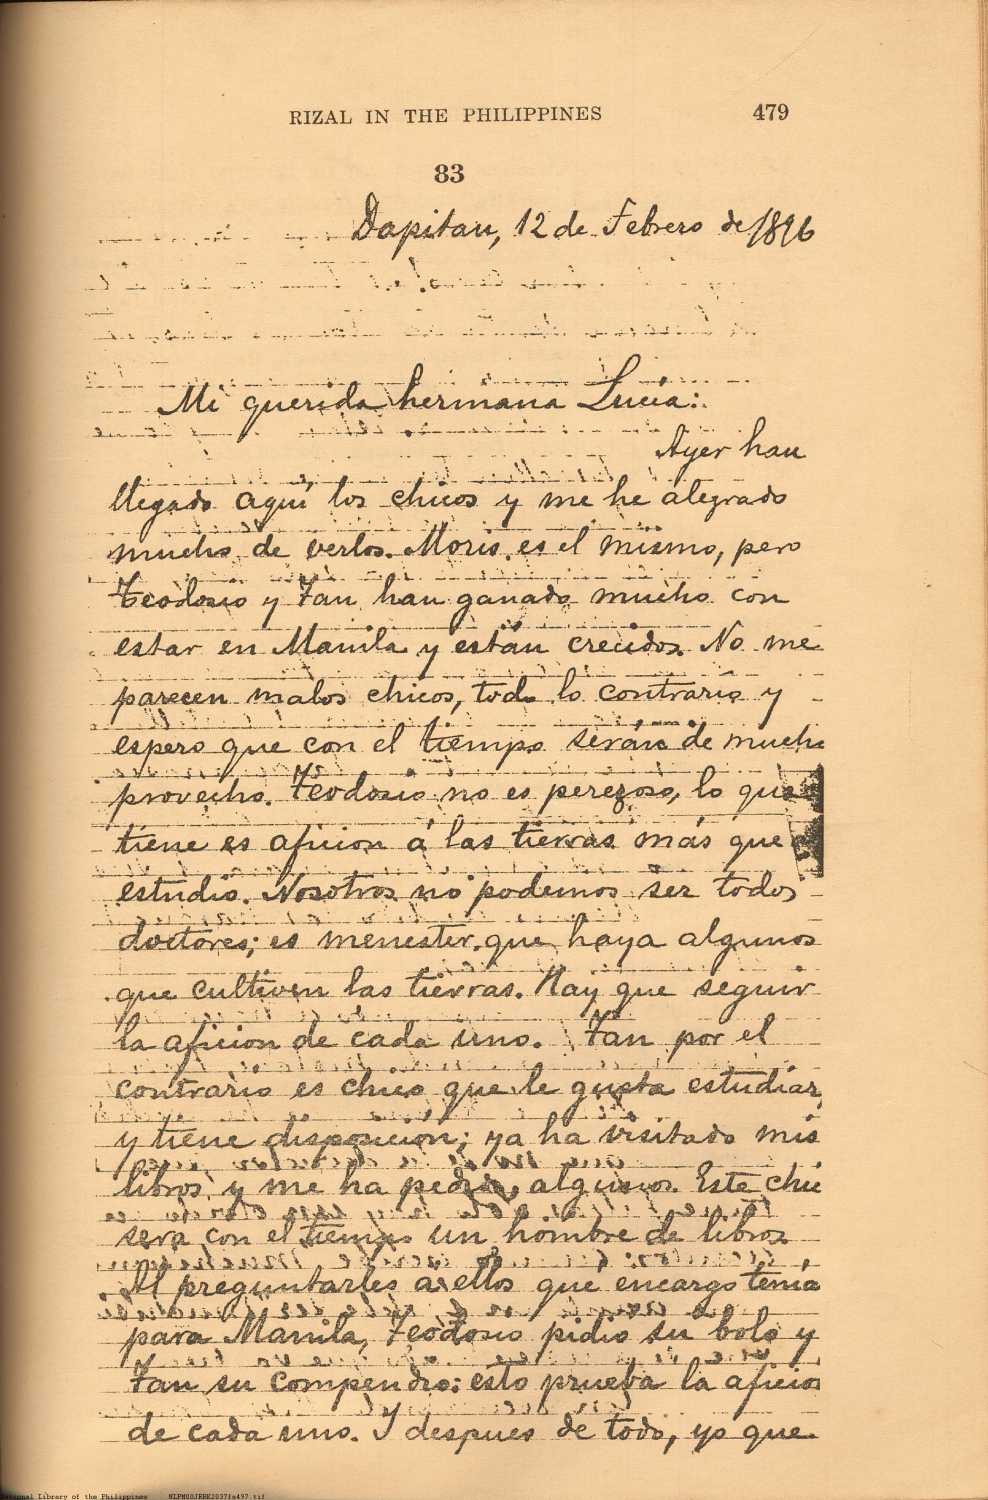 RIZAL IN THE PHILIPPINES 479
83
Dapitan, 12 de Febrero de 1896
Mi querida hermana Lucía:
Ayer han
llegado aquí los chicos y me he alegrado
mucho de verlos. Moris es el mismo, pero
Teodosio y Tan han ganado mucho con
estar en Manila y están crecidos. No me
parecen malos chicos, todo lo contrario y
espero que con el tiempo serán de mucho
provecho. Teodosio no es perezoso, lo que
tiene es aficion á las tierras más que
estudio. Nosotros no podemos ser todos
doctores; es menester que haya algunos
que cultiven las tierras. Hay que seguir
la aficion de cada uno. Tan por el
contrario es chico que le gusta estudiar,
y tiene disposición; ya ha visitado mis
libros y me ha pedido algunos. Este chi
sera con el tiempo un hombre de libros
Al preguntarles á ellos que encargo tenia
para Manila, Teodosio pidio su bolo y
Tan su compendio: esto prueba la aficion
de cada uno. Y despues de todo, yo que
National Library of the Philippines